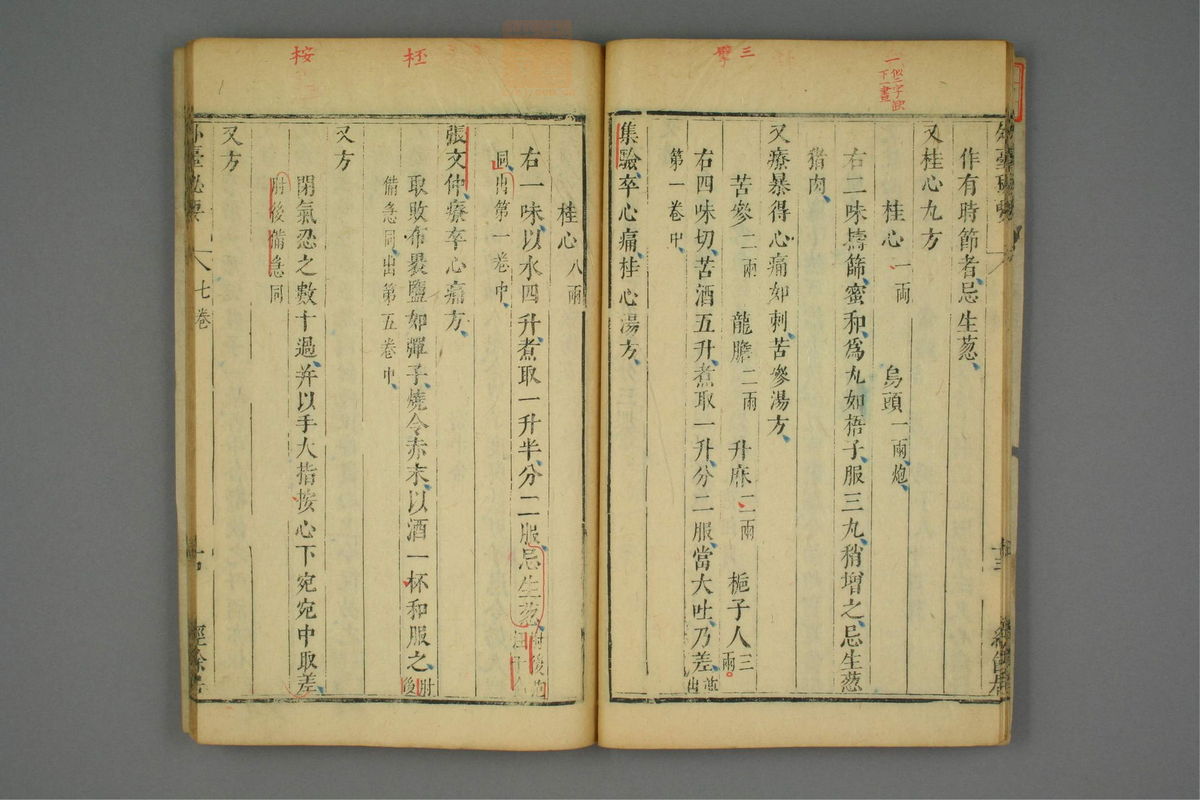 作有時節者忌生葱
又桂心九方
桂心一兩 烏頭一兩炮
右二味擣篩蜜和爲丸如梧子服三丸稍增之忌生葱
猪肉
又療暴得心痛如刺苦參湯方
苦參二兩 龍膽二兩 升麻二兩 梔子人三兩
右四味切苦酒五升煮取一升分二服當大吐乃差並出
第一卷中
集驗卒心痛桂心湯方
桂心八兩
右一味以水四升煮取一升半分二服忌生葱肘後
同出第一卷中
張文仲療卒心痛方
取敗布裹鹽如彈子燒令赤末以酒一杯和服之肘後
備急同出第五卷中
又方
閉氣忍之數十過并以手大指按心下宛宛中取差
肘後備急同
又方
外臺秘要
七卷
十四
經餘居
十三
三
一
似二字缺
下一畫